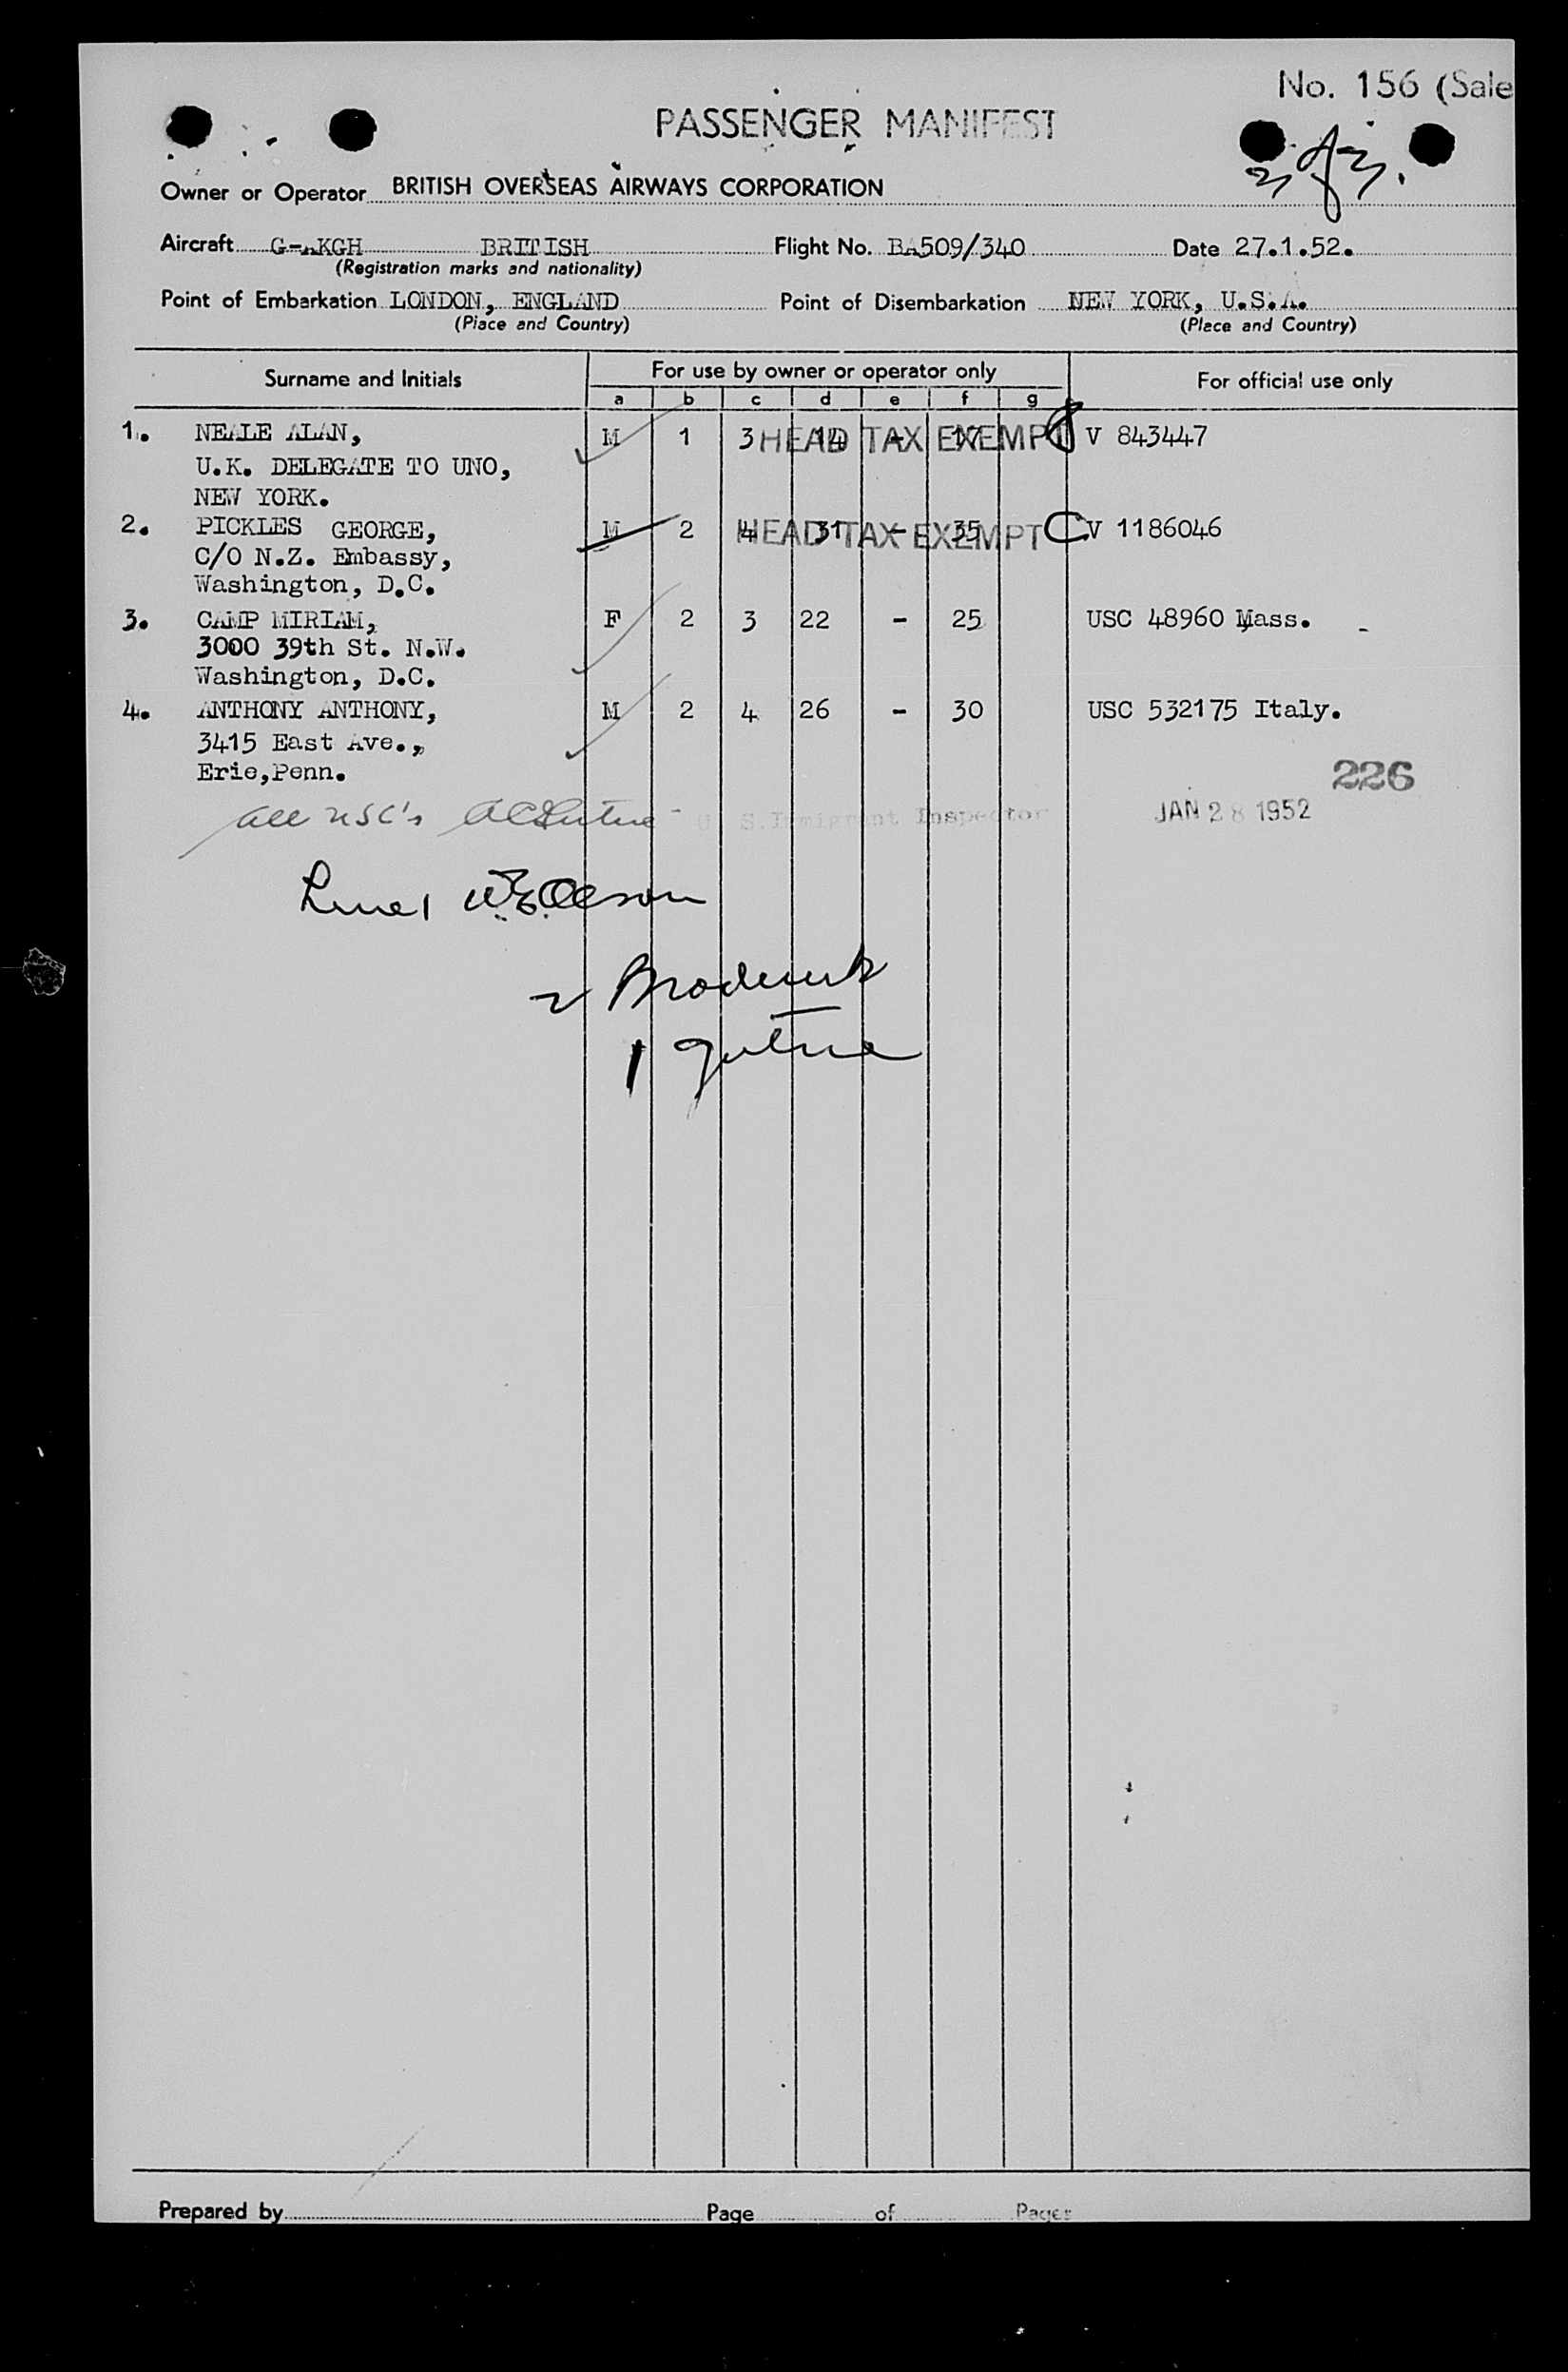 No. 156 (Sale
PASSENGER MANIFEST
Owner or Operator BRITISH OVERSEAS AIRWAYS CORPORATION
Aircraft G-AKGH BRITISH Flight No. BA509/340 Date 27.1.52.
(Registration marks and nationality)
Point of Embarkation LONDON, ENGLAND Point of Disembarkation NEW YORK, U.S.A.
(Place and Country) (Place and Country)
Surname and Initials For use by owner or operator only For official use only
a b c d e f g
1. NEALE ALAN, M 1 3 14 - 17 HEAD TAX EXEMPT V 843447
U.K. DELEGATE TO UNO,
NEW YORK.
2. PICKLES GEORGE, M 2 4 31 - 35 HEAD TAX EXEMPT C V 1186046
C/O N.Z. Embassy,
Washington, D.C.
3. CAMP MIRIAM, F 2 3 22 - 25 USC 48960 Mass. -
3000 39th St. N.W.
Washington, D.C.
4. ANTHONY ANTHONY, M 2 4 26 - 30 USC 532175 Italy.
3415 East Ave.,
Erie,Penn.
226
all USC's U.S. Immigrant Inspector JAN 28 1952
Line 1 Olson
2 Broderick
1
Prepared by Page of Pages